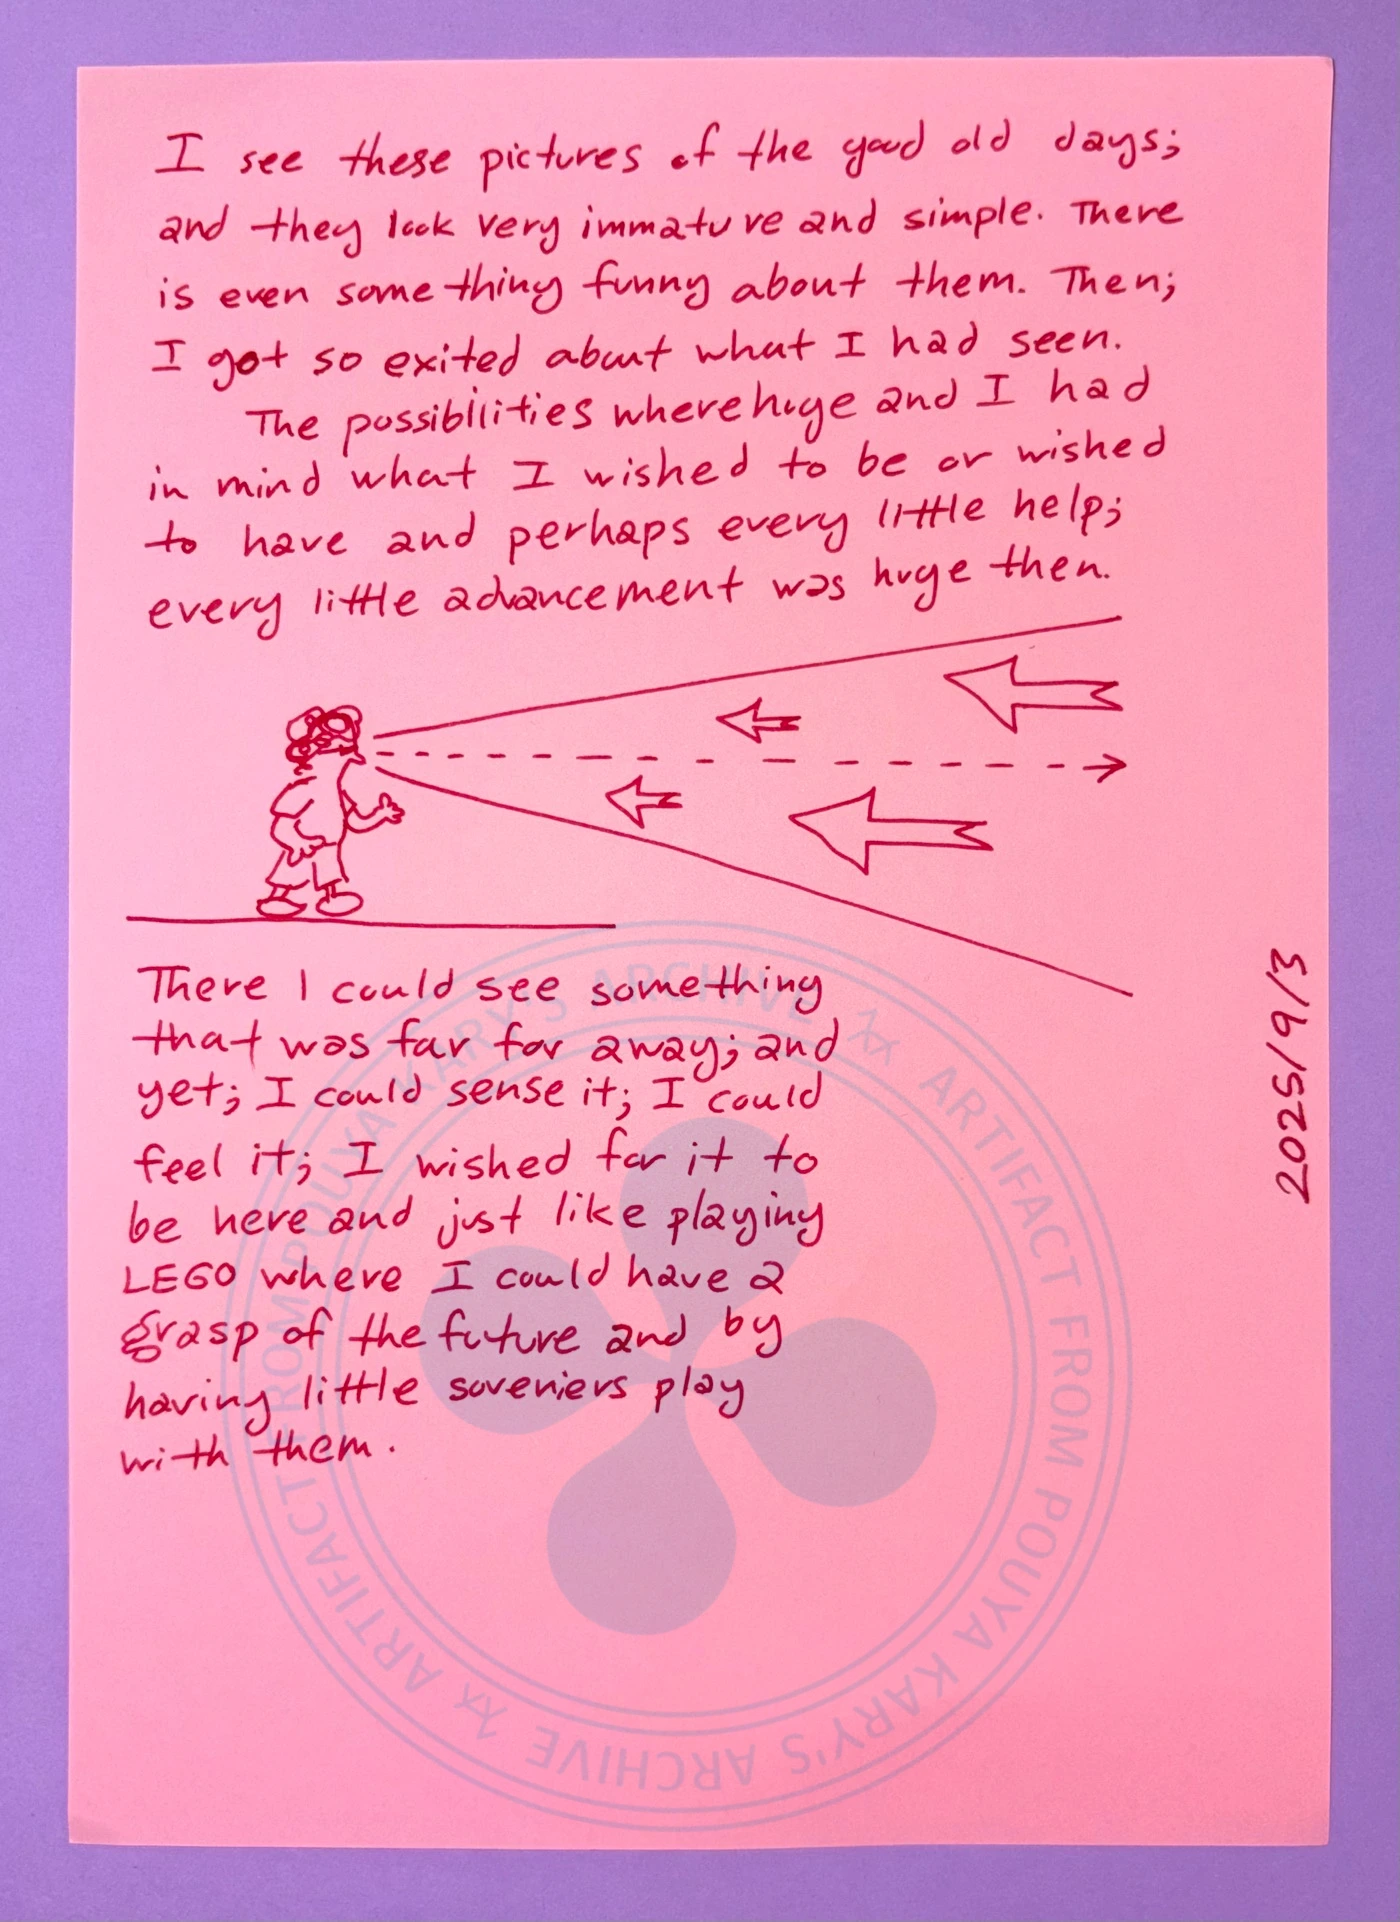 I see these pictures of the good old days;
and they look very immature and simple. There
is even something funny about them. Then;
I got so exited about what I had seen.
The possibilities where huge and I had
in mind what I wished to be or wished
to have and perhaps every little help;
every little advancement was huge then.
There I could see something
that was far for away; and
yet; I could sense it; I could
feel it; I wished for it to
be here and just like playing
LEGO where I could have a
grasp of the future and by
having little soveniers play
with them.
2025/9/3
ARTIFACT FROM POUYA KARY'S ARCHIVE
ARTIFACT FROM POUYA KARY'S ARCHIVE